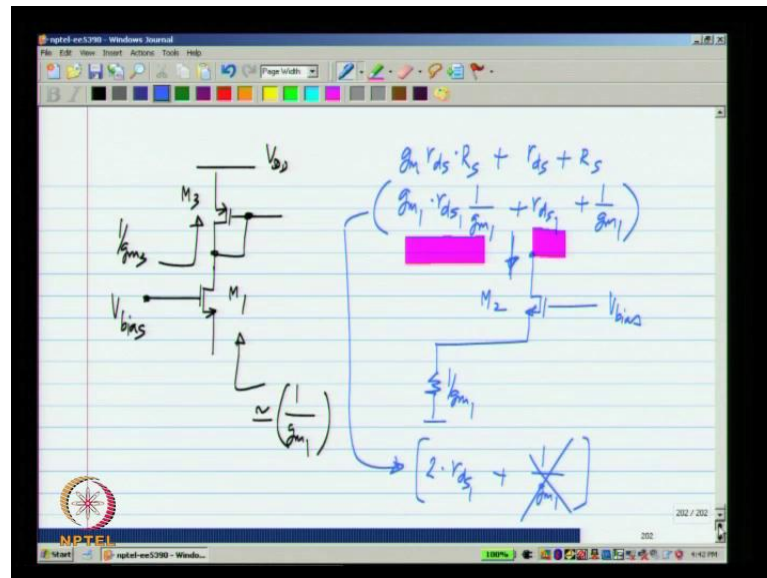 nptel-ee5390 - Windows Journal
File Edit View Insert Actions Tools Help
Page Width
B I
V_DD
M3
1/gm3
M1
Vbias
≃ (1/gm1)
gm rds · Rs + rds + Rs
(gm1 · rds1 1/gm1 + rds1 + 1/gm1)
M2
Vbias
1/gm1
[2 · rds1 + 1/gm1]
202 / 202
202
NPTEL
Start
nptel-ee5390 - Windo...
100%
4:42 PM